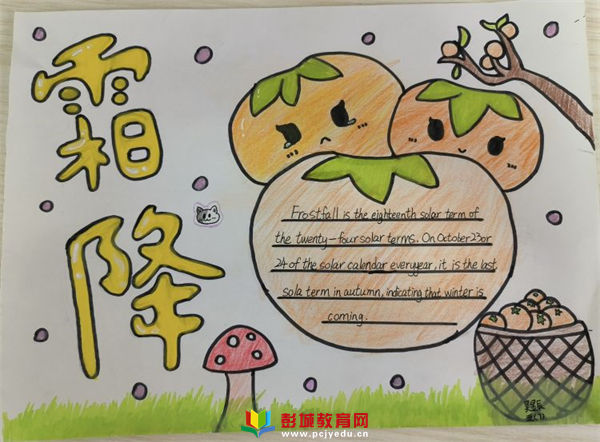 霜
降
Frostfall is the eighteenth solar term of
the twenty-four solar terms. On October 23 or
24 of the solar calendar everyyear, it is the last
sola term in autumn, indicating that winter is
coming.
彭城教育网
www.pcjyedu.cn